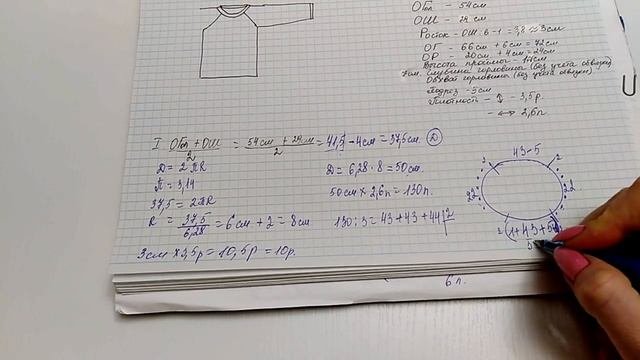 ОГол - 54см
ОШ - 29см
Росток - ОШ:6-1=3,8≈3см
ОГ - 66см + 6см = 72см
ОР 20см + 4см = 24см
Высота проймы - 14см
Глубина горловины (без учета обвязки)
Обхват горловины (без учета обвязки)
Подрез - 3см
Плотность - ↕ - 3,5р
- ↔ - 2,6п
I ОГол + ОШ / 2 = 54см + 29см / 2 = 41,5 - 4см = 37,5см. Д
Д = 2πR
π = 3,14
37,5 = 2πR
R = 37,5 / 6,28 = 6см + 2 = 8см
3см × 3,5р = 10,5р = 10р.
Д = 6,28 · 8 = 50см.
50см × 2,6п = 130п.
130 : 3 = 43 + 43 + 44
43-5
2 2
22 22
2 (1+43+5
6п.